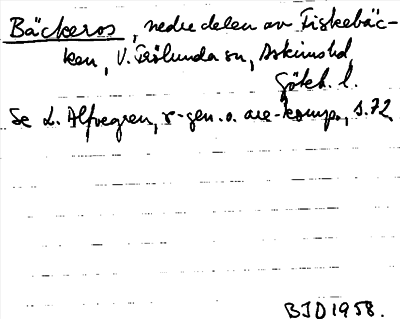 Bäckeros, nedre delen av Fiskebäc-
ken, V. Frölunda sn, Askims hd
Göteb. l.
Se L. Alfvegren, r-gen. o. are-komp., s. 72
BJD 1958.